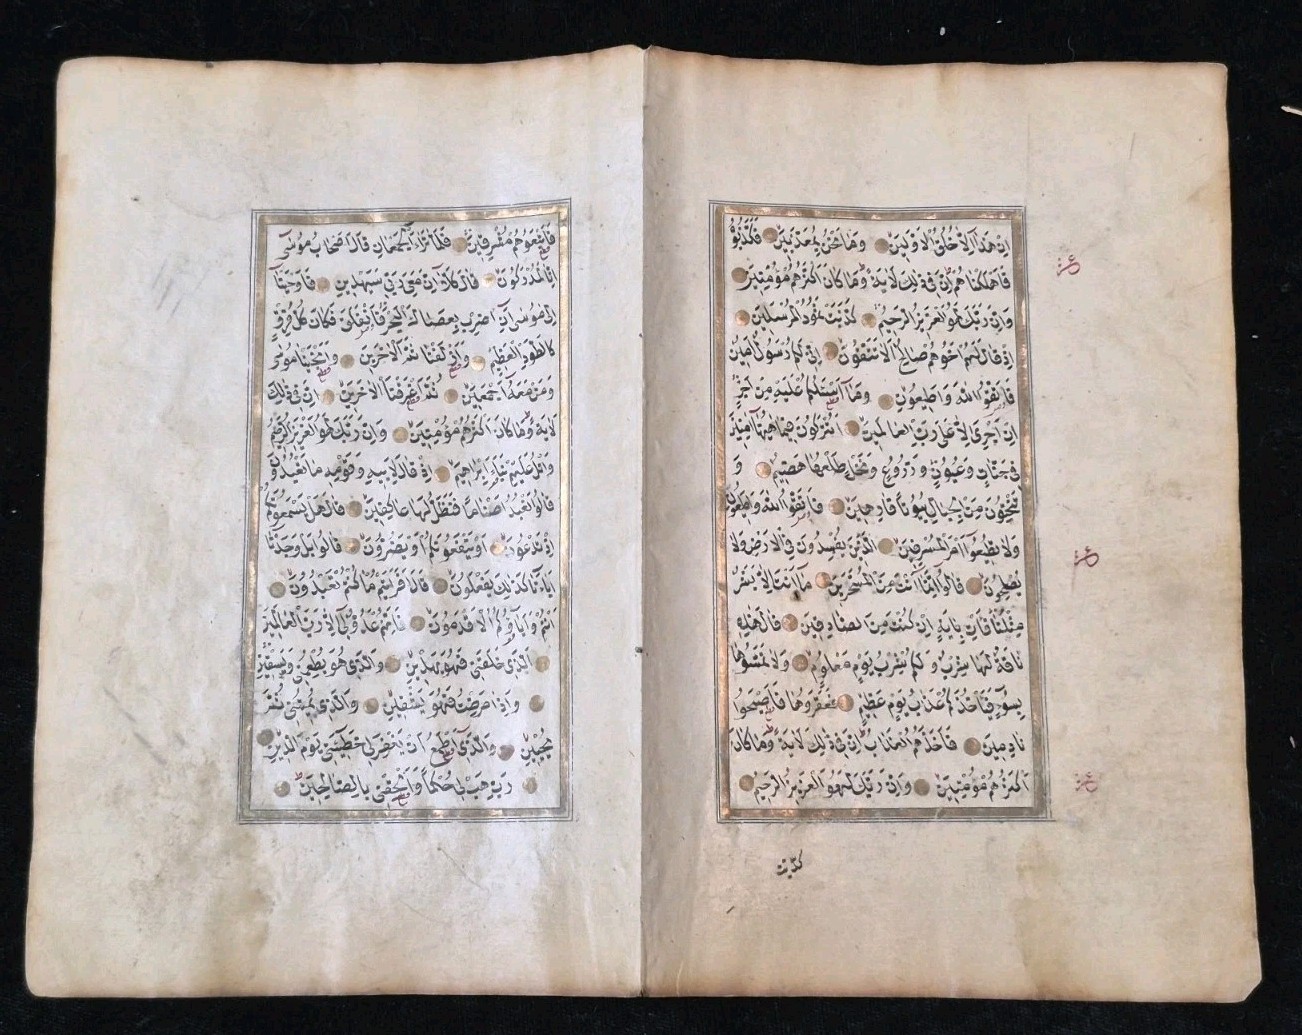 اِنْ هٰذَا اِلَّا خُلُقُ الْاَوَّلِينَ وَمَا نَحْنُ بِمُعَذَّبِينَ فَكَذَّبُوهُ
فَاَهْلَكْنَاهُمْ اِنَّ فِى ذٰلِكَ لَاٰيَةً وَمَا كَانَ اَكْثَرُهُمْ مُؤْمِنِينَ
وَاِنَّ رَبَّكَ لَهُوَ الْعَزِيزُ الرَّحِيمُ كَذَّبَتْ ثَمُودُ الْمُرْسَلِينَ
اِذْ قَالَ لَهُمْ اَخُوهُمْ صَالِحٌ اَلَا تَتَّقُونَ اِنِّى لَكُمْ رَسُولٌ اَمِينٌ
فَاتَّقُوا اللّٰهَ وَاَطِيعُونِ وَمَا اَسْئَلُكُمْ عَلَيْهِ مِنْ اَجْرٍ
اِنْ اَجْرِىَ اِلَّا عَلٰى رَبِّ الْعَالَمِينَ اَتُتْرَكُونَ فِيمَا هٰهُنَا اٰمِنِينَ
فِى جَنَّاتٍ وَعُيُونٍ وَزُرُوعٍ وَنَخْلٍ طَلْعُهَا هَضِيمٌ وَ
تَنْحِتُونَ مِنَ الْجِبَالِ بُيُوتًا فَارِهِينَ فَاتَّقُوا اللّٰهَ وَاَطِيعُونِ
وَلَا تُطِيعُوا اَمْرَ الْمُسْرِفِينَ اَلَّذِينَ يُفْسِدُونَ فِى الْاَرْضِ وَلَا
يُصْلِحُونَ قَالُوا اِنَّمَا اَنْتَ مِنَ الْمُسَحَّرِينَ مَا اَنْتَ اِلَّا بَشَرٌ
مِثْلُنَا فَاْتِ بِاٰيَةٍ اِنْ كُنْتَ مِنَ الصَّادِقِينَ قَالَ هٰذِهِ
نَاقَةٌ لَهَا شِرْبٌ وَلَكُمْ شِرْبُ يَوْمٍ مَعْلُومٍ وَلَا تَمَسُّوهَا
بِسُوءٍ فَيَاْخُذَكُمْ عَذَابُ يَوْمٍ عَظِيمٍ فَعَقَرُوهَا فَاَصْبَحُوا
نَادِمِينَ فَاَخَذَهُمُ الْعَذَابُ اِنَّ فِى ذٰلِكَ لَاٰيَةً وَمَا كَانَ
اَكْثَرُهُمْ مُؤْمِنِينَ وَاِنَّ رَبَّكَ لَهُوَ الْعَزِيزُ الرَّحِيمُ
كذبت
عشر
عشر
عشر
فَاَتْبَعُوهُمْ مُشْرِقِينَ فَلَمَّا تَرَاءَ الْجَمْعَانِ قَالَ اَصْحَابُ مُوسٰى
اِنَّا لَمُدْرَكُونَ قَالَ كَلَّا اِنَّ مَعِىَ رَبِّى سَيَهْدِينِ فَاَوْحَيْنَا
اِلٰى مُوسٰى اَنِ اضْرِبْ بِعَصَاكَ الْبَحْرَ فَانْفَلَقَ فَكَانَ كُلُّ فِرْقٍ
كَالطَّوْدِ الْعَظِيمِ وَاَزْلَفْنَا ثَمَّ الْاٰخَرِينَ وَاَنْجَيْنَا مُوسٰى
وَمَنْ مَعَهُ اَجْمَعِينَ ثُمَّ اَغْرَقْنَا الْاٰخَرِينَ اِنَّ فِى ذٰلِكَ
لَاٰيَةً وَمَا كَانَ اَكْثَرُهُمْ مُؤْمِنِينَ وَاِنَّ رَبَّكَ لَهُوَ الْعَزِيزُ الرَّحِيمُ
وَاتْلُ عَلَيْهِمْ نَبَاَ اِبْرٰهِيمَ اِذْ قَالَ لِاَبِيهِ وَقَوْمِهِ مَا تَعْبُدُونَ
قَالُوا نَعْبُدُ اَصْنَامًا فَنَظَلُّ لَهَا عَاكِفِينَ قَالَ هَلْ يَسْمَعُونَكُمْ
اِذْ تَدْعُونَ اَوْ يَنْفَعُونَكُمْ اَوْ يَضُرُّونَ قَالُوا بَلْ وَجَدْنَا
اٰبَاءَنَا كَذٰلِكَ يَفْعَلُونَ قَالَ اَفَرَاَيْتُمْ مَا كُنْتُمْ تَعْبُدُونَ
اَنْتُمْ وَاٰبَاؤُكُمُ الْاَقْدَمُونَ فَاِنَّهُمْ عَدُوٌّ لِى اِلَّا رَبَّ الْعَالَمِينَ
اَلَّذِى خَلَقَنِى فَهُوَ يَهْدِينِ وَالَّذِى هُوَ يُطْعِمُنِى وَيَسْقِينِ
وَاِذَا مَرِضْتُ فَهُوَ يَشْفِينِ وَالَّذِى يُمِيتُنِى ثُمَّ
يُحْيِينِ وَالَّذِى اَطْمَعُ اَنْ يَغْفِرَ لِى خَطِيئَتِى يَوْمَ الدِّينِ
رَبِّ هَبْ لِى حُكْمًا وَاَلْحِقْنِى بِالصَّالِحِينَ